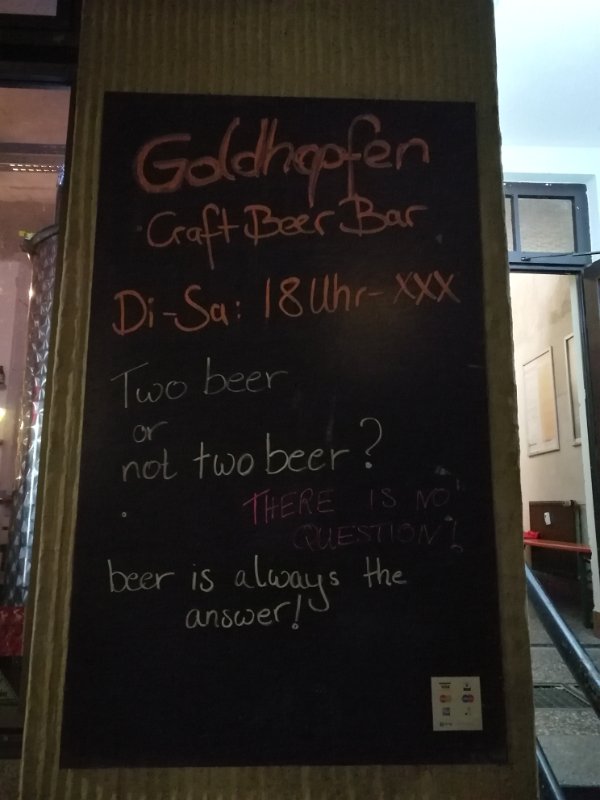 Goldhopfen
Craft Beer Bar
Di-Sa: 18 Uhr-XXX
Two beer
or
not two beer?
THERE IS NO
QUESTION!
beer is always the
answer!